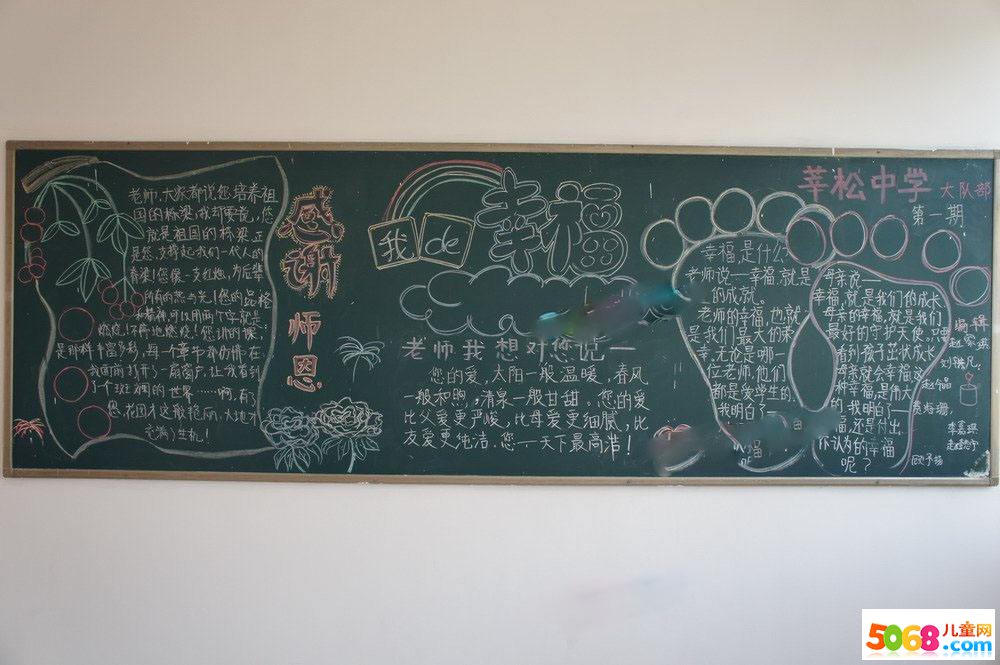 老师,大家都说您培养祖
国的栋梁;我却要说,您
就是祖国的栋梁.正
是您,支撑起我们一代人的
脊梁!您像一支红烛,为后辈
所有的热与光!您的品格
和精神,可以用两个字就是
燃烧!不停地燃烧!您讲的课,
是那样丰富多彩,每一个章节都仿佛在
我面前打开了一扇窗户,让我看到
了一个斑斓的世界……啊,有了
您,花园才这般艳丽,大地才
充满了生机!
感谢
师恩
我de幸福
老师我想对您说一
您的爱,太阳一般温暖,春风
一般和煦,清泉一般甘甜。您的爱
比父爱更严峻,比母爱更细腻,比
友爱更纯洁。您一天下最高洁!
幸福是什么
老师说一幸福,就是
的成就。
老师的幸福,也就
是我们最大的荣
幸,无论是哪一
位老师,他们
都是爱学生的,
我明白了一
福
母亲说一
幸福,就是我们的成长
母亲的幸福,就是我们
最好的守护天使,只要
看到孩子茁壮成长
母亲就会幸福,这
种幸福,是伟大
的,我明白了一
福,还是付出.
你认为的幸福
呢?
莘松中学 大队部
第一期
编辑
5068儿童网
.com